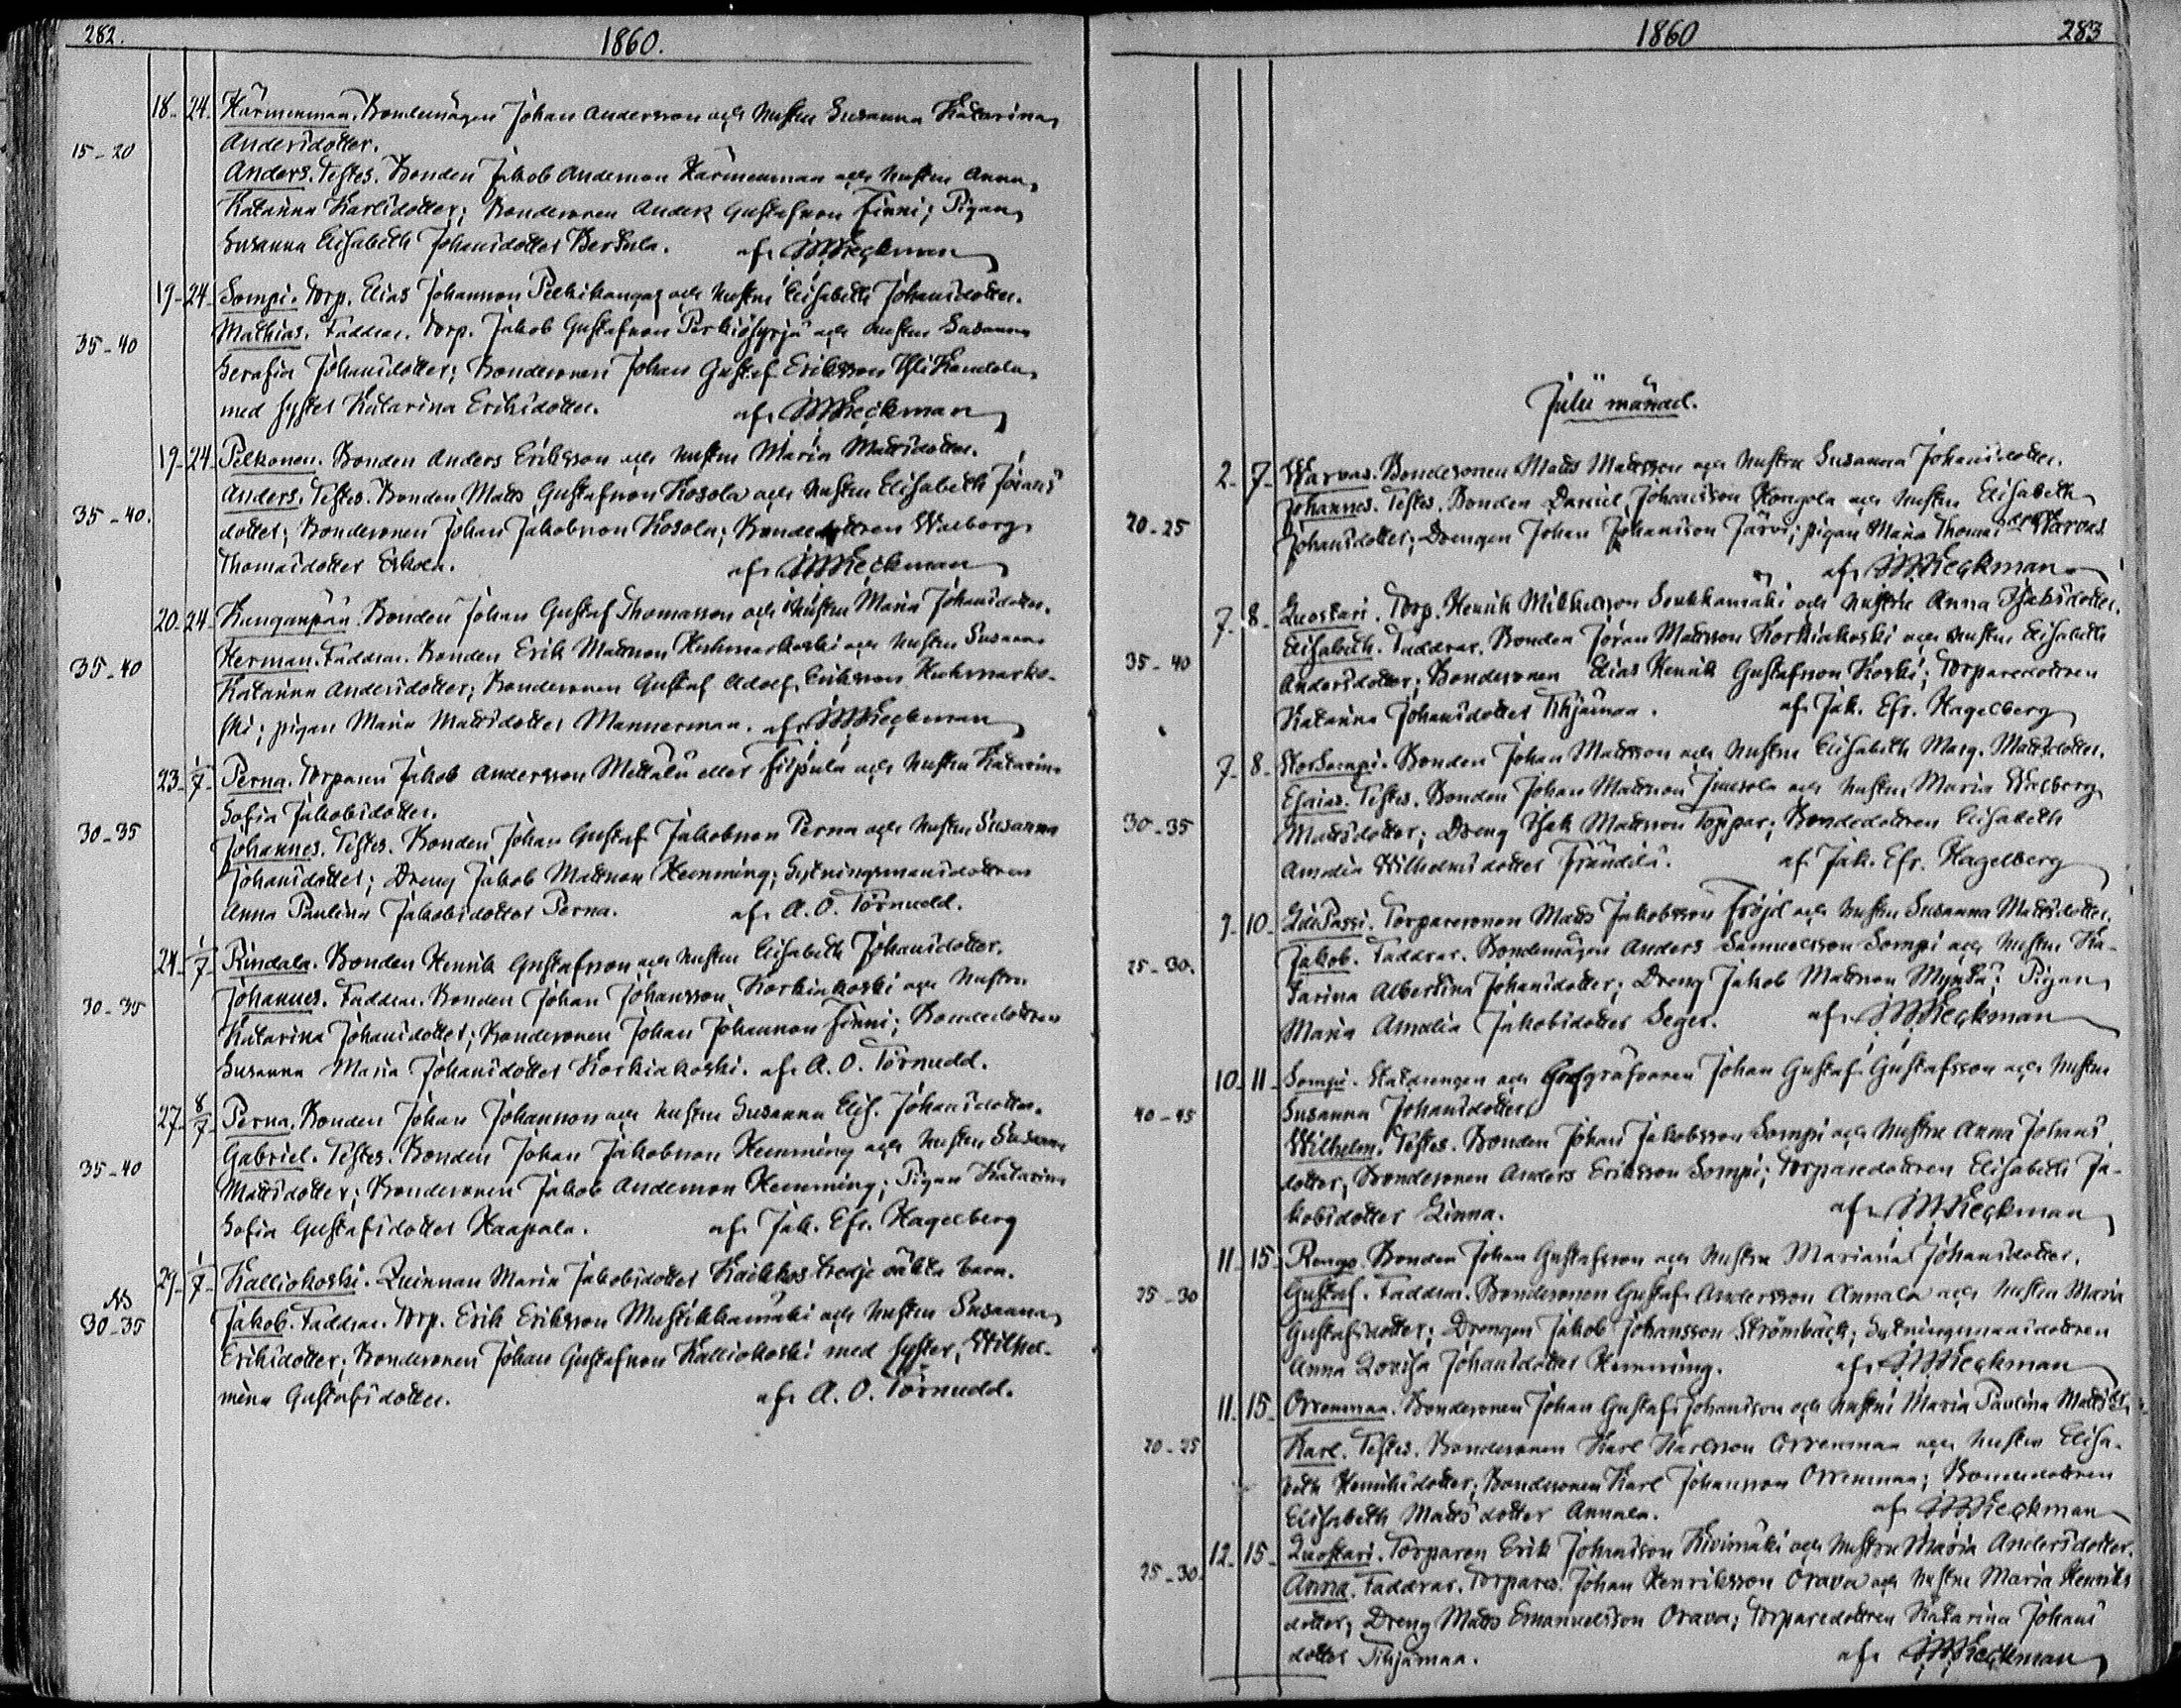 282.
1860.
18. 24. Kärmenmaa. Bondemågen Johan Andersson och hustru Susanna Katarina
15-20 Andersdotter.
Anders. Testes. Bonden Jakob Andersson Kärmenmaa och hustru Anna
Katarina Karlsdotter; Bondesonen Anders Gustafsson Finni; Pigan
Susanna Elisabeth Johansdotter Bertula. af
19-24 Sompi. Torp. Elias Johansson Pelkikangas och hustru Elisabeth Johansdotter.
35-40 Mathias. Faddrar. Torp. Jakob Gustafsson Perkiösyrjä och hustru Susanna
Serafia Johansdotter; Bondesonen Johan Gustaf Eriksson YliKandola
med syster Katarina Eriksdotter. af
19-24 Pelkonen. Bonden Anders Eriksson och hustru Maria Mattsdotter.
Anders. Testes. Bonden Matts Gustafsson Kosola och hustru Elisabeth Jörans
35-40. dotter; Bondesonen Johan Jakobsson Kosola; Bondedottren Walborg
Thomasdotter af
20-24 Kanganpää. Bonden Johan Gustaf Thomasson och hustru Maria Johansdotter.
Herman. Faddrar. Bonden Erik Mattsson Kuhmarkoski och hustru Susanna
35-40 Katarina Andersdotter; Bondesonen Gustaf Adolf Eriksson Kuhmarko-
ski; pigan Maria Mattsdotter Mannermaa. af
23 1/7 Perna. Torparen Jakob Andersson Mettälä eller Filpula och hustru Katarina
Sofia Jakobsdotter.
30-35 Johannes. Testes. Bonden Johan Gustaf Jakobsson Perna och hustru Susanna
Johansdotter; Dreng Jakob Mattsson Hemming; Sytningsmansdottren
Anna Paulina Jakobsdotter Perna. af A. O. Törnudd.
24 1/7 Rindala. Bonden Henrik Gustafsson och hustru Elisabeth Johansdotter.
Johannes. Faddrar. Bonden Johan Johansson Korkiakoski och hustru
30-35 Katarina Johansdotter; Bondesonen Johan Johansson Finni; Bondedottren
Susanna Maria Johansdotter Korkiakoski. af A. O. Törnudd.
27 8/7 Perna. Bonden Johan Johansson och hustru Susanna Elis. Johansdotter.
Gabriel. Testes. Bonden Johan Jakobsson Hemming och hustru Susanna
35-40 Mattsdotter; Bondesonen Jakob Andersson Hemming; Pigan Katarina
Sofia Gustafsdotter Haapala. af Jak. Efr. Hagelberg
29 1/7 Kalliokoski. Qvinnan Maria Jakobsdotter tredje oäkta barn.
30-35 Jakob. Faddrar. Torp. Erik Eriksson Mustikkamäki och hustru Susanna
Eriksdotter; Bondesonen Johan Gustafsson Kalliokoski med syster, Wilhel-
mina Gustafsdotter. af A. O. Törnudd.
1860
283
Julii månad.
2. 7. Warvas. Bondesonen Matts Mattsson och hustru Susanna Johansdotter.
Johannes. Testes. Bonden Daniel Johansson Kongola och hustru Elisabeth
20-25 Johansdotter; Drengen Johan Johansson Järvi; pigan Maria Thomasdr Warvas
af
7. 8. Luostari. Torp. Henrik Mikkelsson Soukkamäki och hustru Anna Isaksdotter.
Elisabeth. Faddrar. Bonden Jöran Mattsson Korkiakoski och hustru Elisabeth
35-40 Andersdotter; Bondesonen Elias Henrik Gustafsson Koski; Torparedottren
Katarina Johansdotter Tihjämaa. af Jak. Efr. Hagelberg
7. 8. StorSompi. Bonden Johan Mattsson och hustru Elisabeth Marg. Mattsdotter.
Esaias. Testes. Bonden Johan Mattsson Juusola och hustru Maria Walborg
30-35 Mattsdotter; Dreng Isak Mattsson Toppar; Bondedottren Elisabeth
Amalia Wilhelmsdotter Frändilä. af Jak. Efr. Hagelberg
9. 10. LillPassi. Torparesonen Matts Jakobsson Fröjd och hustru Susanna Mattsdotter.
Jakob. Faddrar. Bondemågen Anders Samuelsson Sompi och hustru Ka-
25-30. tarina Albertina Johansdotter; Dreng Jakob Mattsson Myntä; Pigan
Maria Amalia Jakobsdotter Seger. af
10. 11. Sompi. Statdrengen och Grafgräfvaren Johan Gustaf Gustafsson och hustru
40-45 Susanna Johansdotter.
Wilhelm. Testes. Bonden Johan Jakobsson Sompi och hustru Anna Johans
dotter; Bondesonen Anders Eriksson Sompi; Torparedottren Elisabeth Ja-
kobsdotter Linna. af
11. 15. Rengo. Bonden Johan Gustafsson och hustru Mariana Johansdotter.
25-30 Gustaf. Faddrar. Bondesonen Gustaf Andersson Annala och hustru Maria
Gustafsdotter; Drengen Jakob Johansson Strömbäck; Sytningsmansdottren
Anna Lovisa Johansdotter Hemming. af
11. 15. Orrenmaa. Bondesonen Johan Gustaf Johansson och hustru Maria Paulina Mattsdr.
20-25 Karl. Testes. Bondesonen Karl Karlsson Orrenmaa och hustru Elisa-
beth Henriksdotter; Bondesonen Karl Johansson Orrenmaa; Bondedottren
Elisabeth Mattsdotter Annala. af
12. 15. Luostari. Torparen Erik Johansson Kivimäki och hustru Maria Andersdotter.
25-30. Anna. Faddrar. Torpares. Johan Henriksson Orava och hustru Maria Henriks
dotter; Dreng Matts Emanuelsson Orava; Torparedottren Katarina Johans
dotter Tihjämaa. af